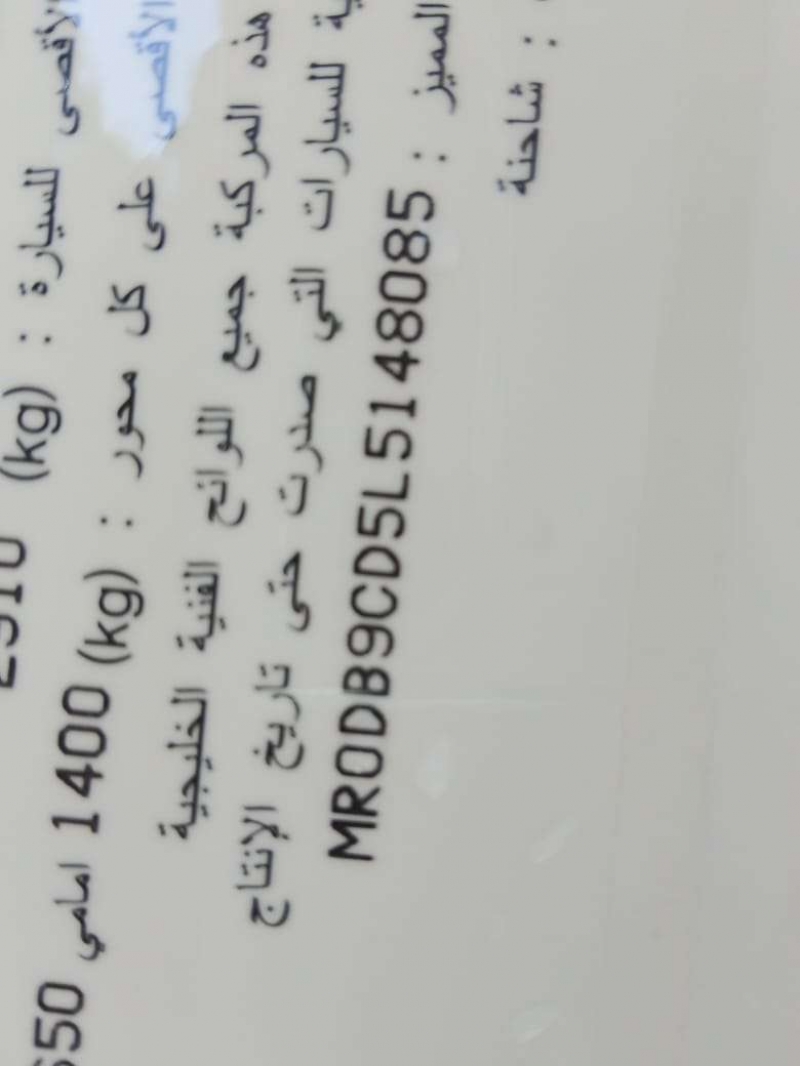 الأقصى للسيارة : (kg)
الأقصى على كل محور : (kg) 1400 امامي 650
هذه المركبة جميع اللوائح الفنية الخليجية
للسيارات التي صدرت حتى تاريخ الإنتاج
المميز : MR0DB9CD5L5148085
: شاحنة